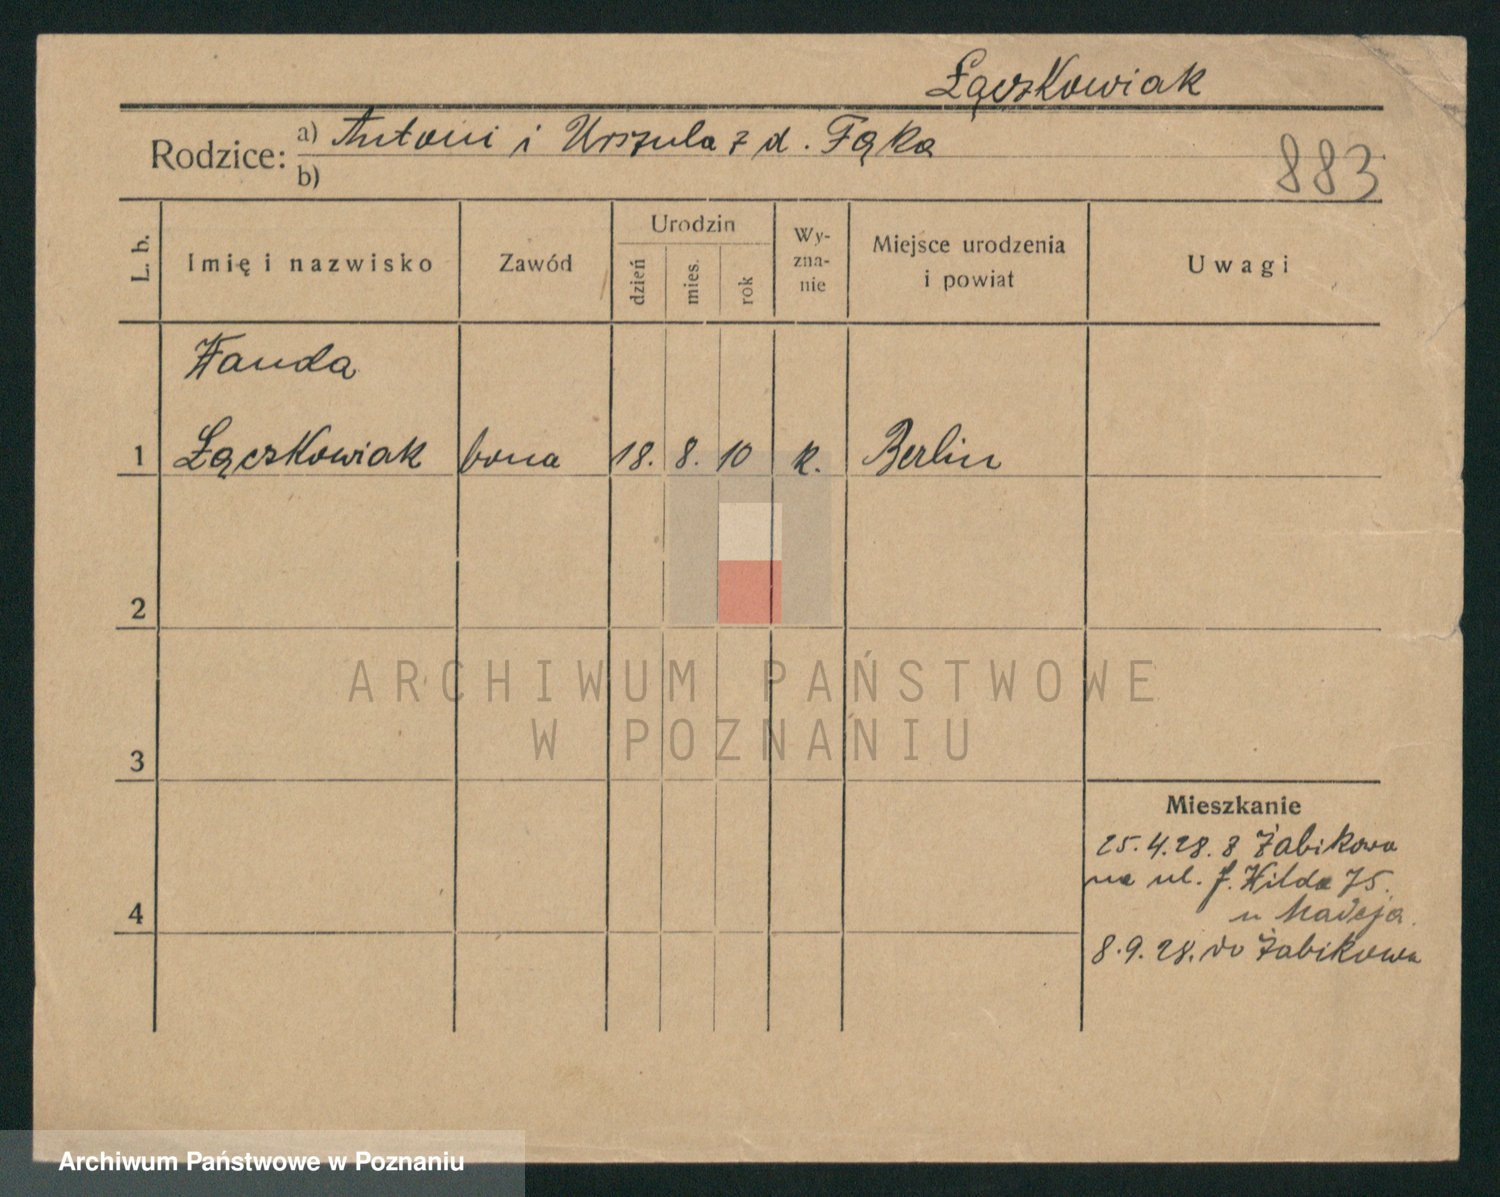 Łączkowiak
Rodzice: a) Antoni i Urszula z d. Fąka
b)
883
L. b.
Imię i nazwisko
Zawód
Urodzin
dzień
mies.
rok
Wy-
zna-
nie
Miejsce urodzenia
i powiat
Uwagi
Wanda
1 Łączkowiak bona 18. 8. 10 k. Berlin
2
3
4
Mieszkanie
25.4.28. z Żabikowa
na ul. f. Wilda 75.
u Madeja.
8.9.28. do Żabikowa
ARCHIWUM PAŃSTWOWE
W POZNANIU
Archiwum Państwowe w Poznaniu